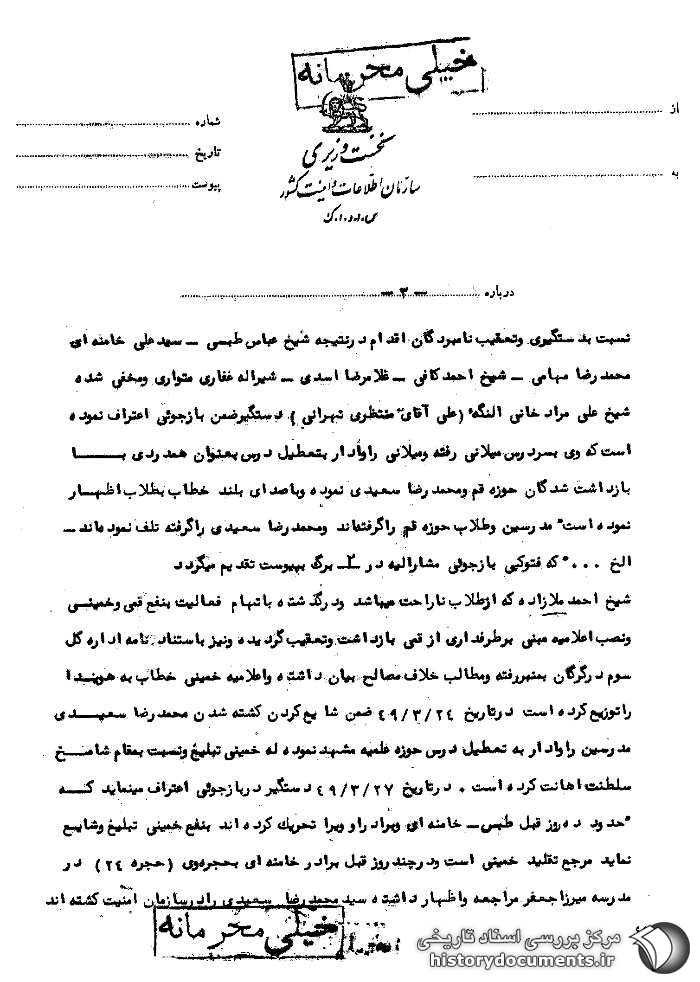 خیلی محرمانه
از
شماره
نخست وزیری
تاریخ
به
سازمان اطلاعات و امنیت کشور
پیوست
س.ا.و.ا.ک
درباره
-۳-
نسبت بدستگیری وتعقیب نامبردگان اقدام درنتیجه شیخ عباس طبسی - سیدعلی خامنه ای
محمدرضا مهامی - شیخ احمدکافی - غلامرضا اسدی - شیراله غفاری متواری ومخفی شده
شیخ علی مراد خانی النگه (علی آقای منتظری تهرانی) دستگیرضمن بازجوئی اعتراف نموده
است که وی بسردرس میلانی رفته ومیلانی راوادار بتعطیل درس بعنوان همدردی بـــا
بازداشت شدگان حوزه قم ومحمدرضا سعیدی نموده وباصدای بلند خطاب بطلاب اظهـار
نموده است" مدرسین وطلاب حوزه قم راگرفته‌اند ومحمدرضا سعیدی راگرفته تلف نموده‌اند -
الخ ..." که فتوکپی بازجوئی مشارالیه در برگ بپیوست تقدیم میگردد
شیخ احمد ملازاده که ازطلاب ناراحت میباشد ودرگذشته باتهام فعالیت بنفع قمی وخمینـی
ونصب اعلامیه مبنی برطرفداری از قمی بازداشت وتعقیب گردیده ونیز باستناد نامه اداره کل
سوم درگرگان بمنبررفته ومطالب خلاف مصالح بیان داشته واعلامیه خمینی خطاب به هویـدا
راتوزیع کرده است درتاریخ ۴۹/۳/۲۴ ضمن شایع کردن کشته شدن محمدرضا سعیـدی
مدرسین راوادار به تعطیل درس حوزه علمیه مشهد نموده له خمینی تبلیغ ونسبت بمقام شامـخ
سلطنت اهانت کرده است . درتاریخ ۴۹/۳/۲۷ دستگیر دربازجوئی اعتراف مینماید کــه
"حدود ده روز قبل طبسی - خامنه ای وبرادراو ویرا تحریک کرده اند بنفع خمینی تبلیغ وشایـع
نماید مرجع تقلید خمینی است ودرچند روز قبل برادر خامنه ای بحجره‌وی (حجره ۲۴) در
مدرسه میرزاجعفر مراجعه واظهار داشته سید محمدرضا سعیدی رادرسازمان امنیت کشته اند
خیلی محرمانه
مرکز بررسی اسناد تاریخی
historydocuments.ir